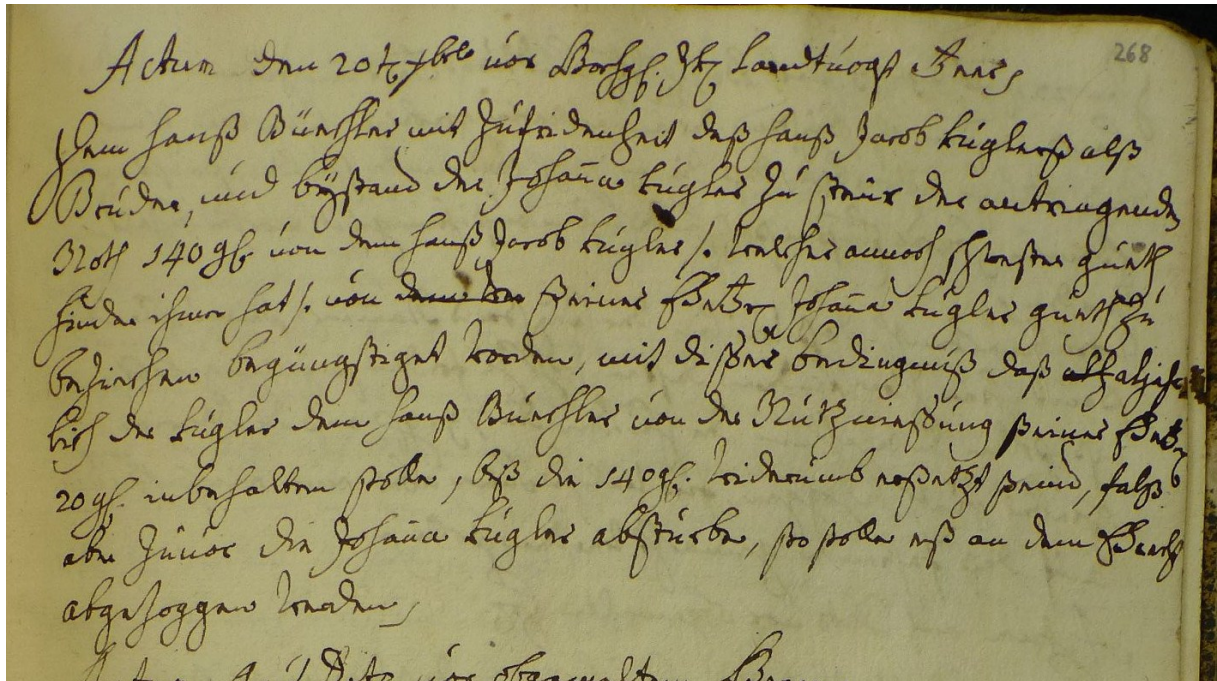 268
Actum den 20t 7bris vor Landtvogt
Dem Hanß Büechler mit Zufridenheit deß Hanß Jacob Kuglerß alß
Bruder, und beÿstand der Johanna Kugler zu steür der antringenden
Noth 140 gl. von dem Hanß Jacob Kugler /. welcher annoch schwester gueth
hinder ihme hat /. von seiner Johanna Kugler gueth zu
beziechen begüngstiget worden, mit dißer bedingnuß daß
lich der Kugler dem Hanß Büechler von der Nutznießung seiner
20 gl. inbehalten solle, biß die 140 gl. widerumb ersetzt seind, falß
aber zuvor die Johanna Kugler absturbe, so solle eß an dem
abgezoggen werden,